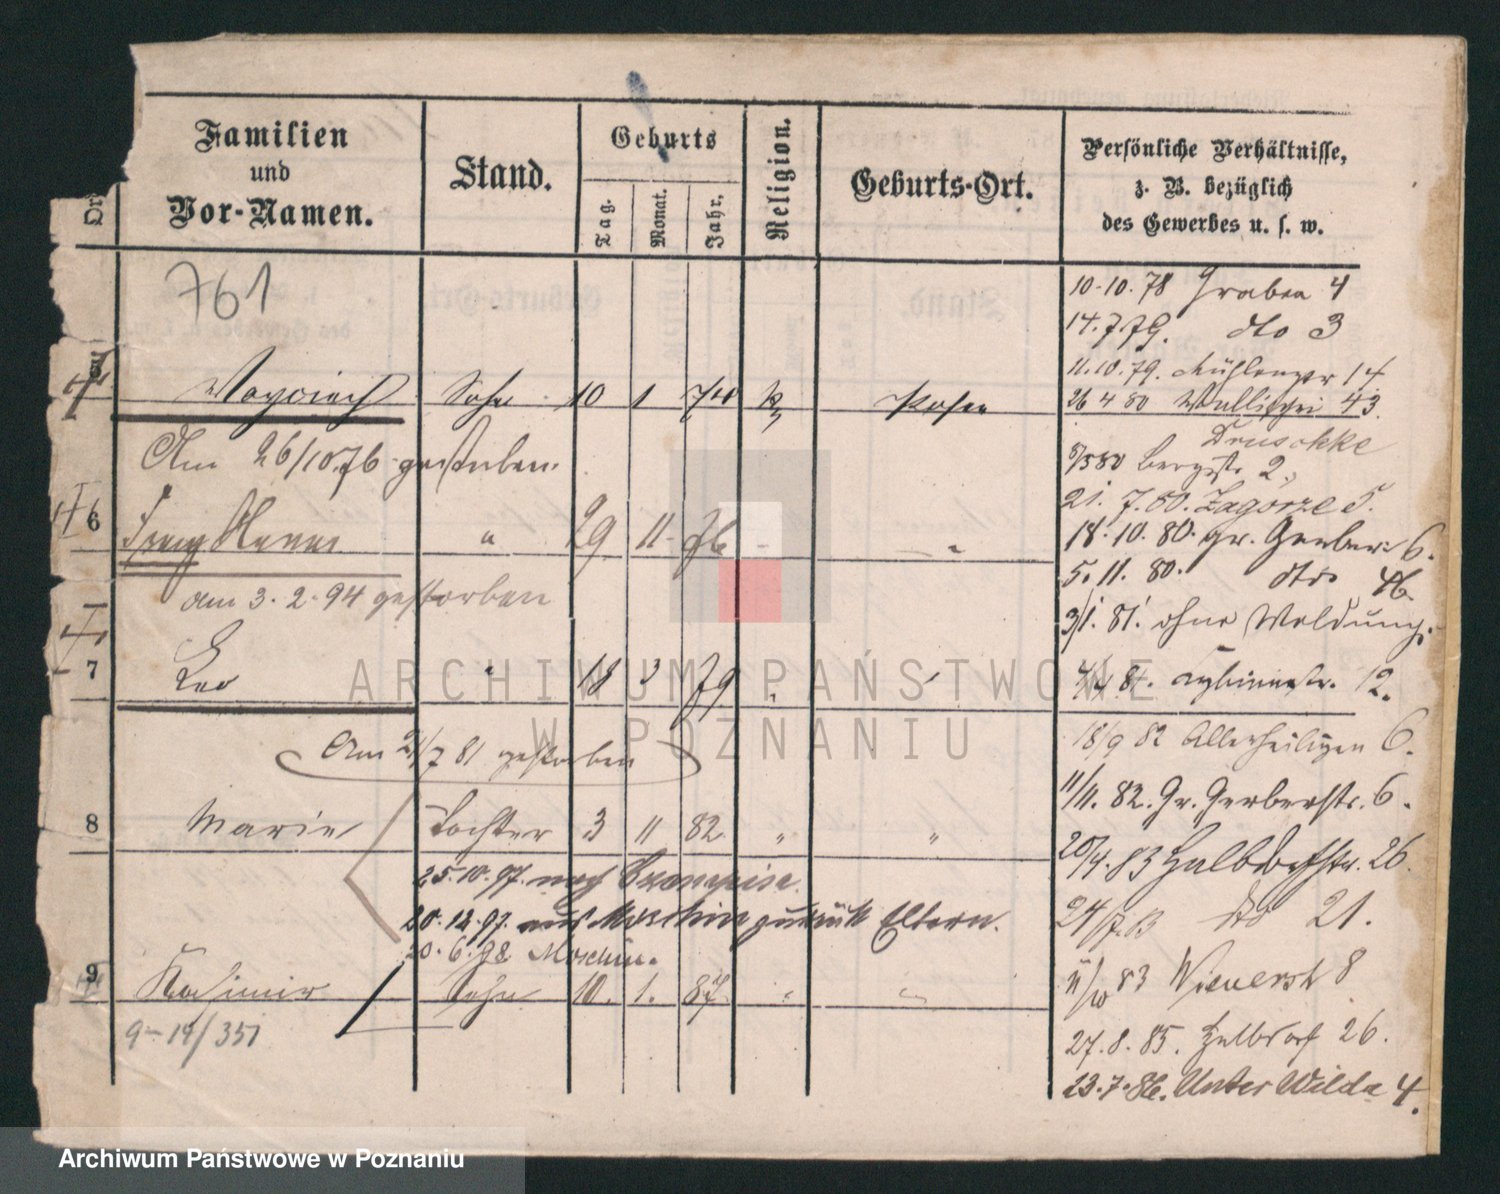 Familien
und
Vor-Namen.
Stand.
Geburts
Tag.
Monat.
Jahr.
Religion.
Geburts-Ort.
Persönliche Verhältnisse,
z. B. bezüglich
des Gewerbes u. s. w.
761
10.10.78 Graben 4
14.7.79. dto 3
11.10.79. 14
Woyciech Sohn 10 1 74 k. Posen
26 4 80 Wallischei 43.
Druschke
Am 26/10.76 gestorben.
5/5 80 Bergstr. 2.
21. 7. 80. Zagórze 5.
6 " 29 11 76 - "
18. 10. 80. gr. Gerber 6.
5. 11. 80. dto 46.
am 3. 2. 94 gestorben
3/1. 81. ohne Meldung.
7 Leo " 18 3 79 " "
81. 12.
Am 21/7 81 gestorben
18/9 82 Allerheiligen 6.
11/11. 82. Gr. Gerberstr. 6.
8 Marie Tochter 3 11 82 " "
20/4. 83 Halbdorfstr. 26
25.10.97. nach
20.12.97. aus Moschin zurück Eltern.
24/7.83 dto 21.
20. 6. 98. Moschin.
9 Kasimir Sohn 10. 1. 87 " "
11/10 83 Wienerst 8
9-14/351
27. 8. 85. Halbdorf 26.
23. 7. 86. Unter Wilda 4.
ARCHIWUM PAŃSTWOWE
W POZNANIU
Archiwum Państwowe w Poznaniu